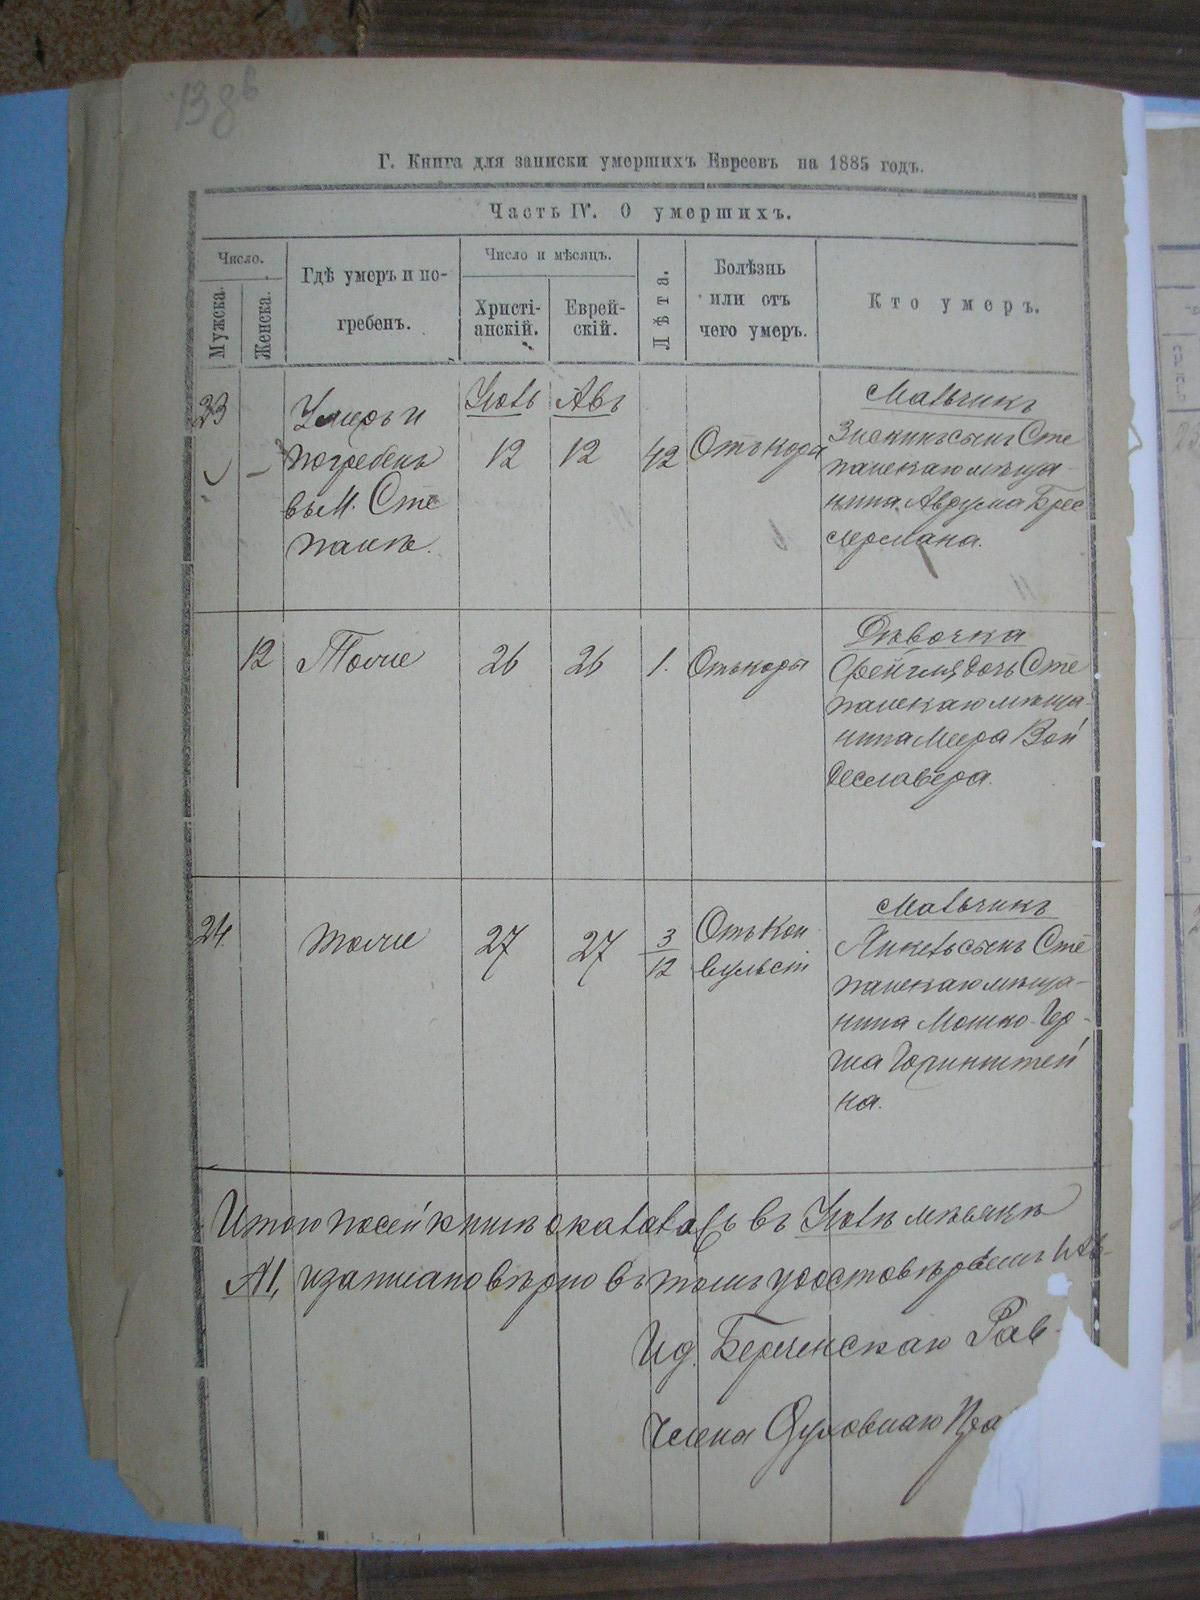 138
Г. Книга для записки умершихъ Евреевъ на 1885 годъ.
Часть IV. О умершихъ.
Число.
Мужска.
Женска.
Гдѣ умеръ и по-
гребенъ.
Число и мѣсяцъ.
Христі-
анскій.
Еврей-
скій.
Лѣта.
Болѣзнь
или отъ
чего умеръ.
Кто умеръ.
23
Умеръ и
погребенъ
въ М. Сте
пани.
Іюль
12
Авъ
12
Отъ кора
Мальчикъ
сынъ Сте
панскаго мѣща
нина Аврума Брес
лермана.
12
Тоже
26
26
1.
Отъ коры
Дѣвочка
дочь Сте
панскаго мѣща-
нина Меера Вой
деславера.
24
тоже
27
27
3/12
Отъ кон
вульсій
Мальчикъ
Янкель сынъ Сте
панскаго мѣща-
нина Мошко-Гер-
ша Горинштей
на.
Итого по сей книгѣ оказалось въ Іюлѣ мѣсяцѣ
и записано вѣрно въ томъ удостовѣряемъ
И д. Береченскаго Рав
Члена Духовнаго Пра